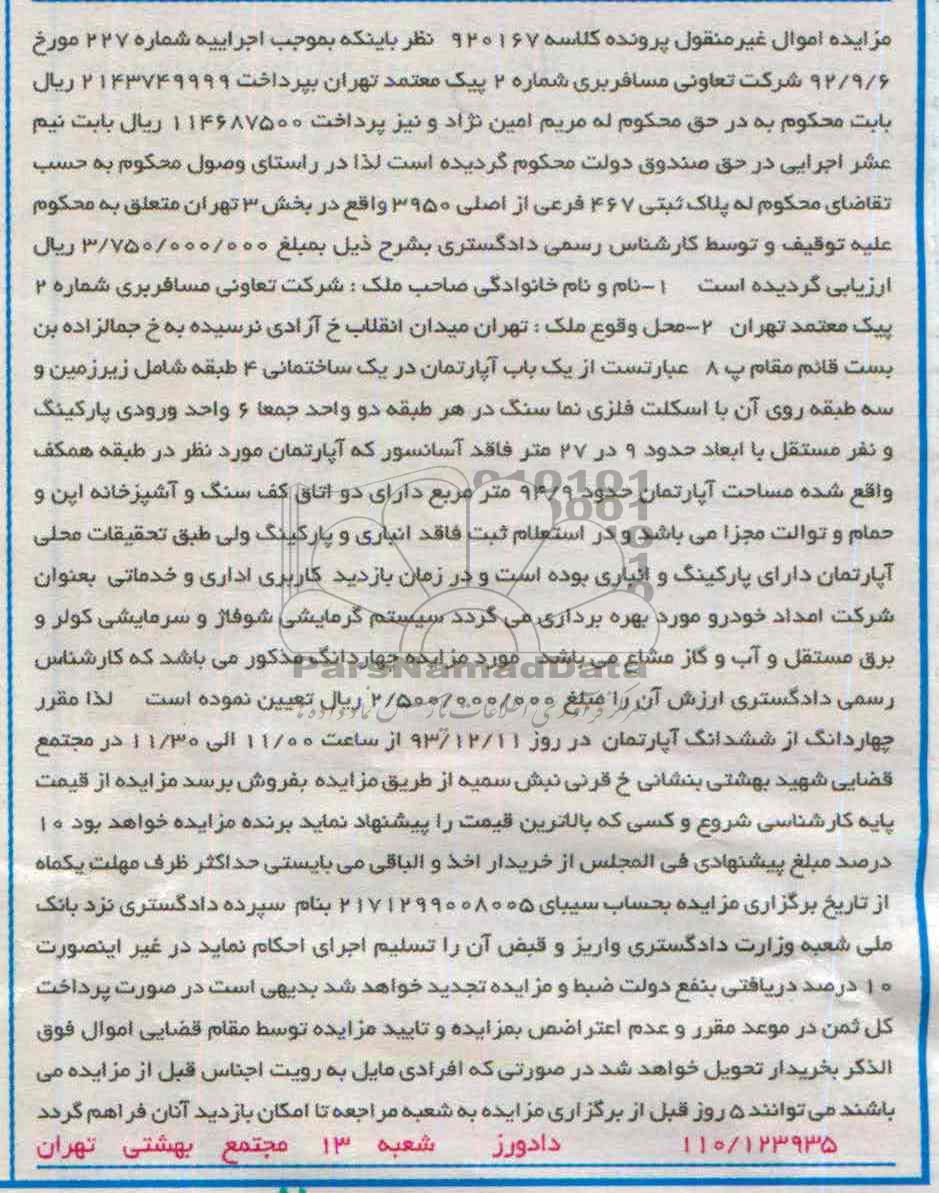 مزایده اموال غیرمنقول پرونده کلاسه ۹۲۰۱۶۷ نظر باینکه بموجب اجراییه شماره ۲۲۷ مورخ
۹۲/۹/۶ شرکت تعاونی مسافربری شماره ۲ پیک معتمد تهران بپرداخت ۲۱۴۳۷۴۹۹۹۹ ریال
بابت محکوم به در حق محکوم له مریم امین نژاد و نیز پرداخت ۱۱۴۶۸۷۵۰۰ ریال بابت نیم
عشر اجرایی در حق صندوق دولت محکوم گردیده است لذا در راستای وصول محکوم به حسب
تقاضای محکوم له پلاک ثبتی ۴۶۷ فرعی از اصلی ۳۹۵۰ واقع در بخش ۳ تهران متعلق به محکوم
علیه توقیف و توسط کارشناس رسمی دادگستری بشرح ذیل بمبلغ ۳/۷۵۰/۰۰۰/۰۰۰ ریال
ارزیابی گردیده است ۱-نام و نام خانوادگی صاحب ملک : شرکت تعاونی مسافربری شماره ۲
پیک معتمد تهران ۲-محل وقوع ملک : تهران میدان انقلاب خ آزادی نرسیده به خ جمالزاده بن
بست قائم مقام پ ۸ عبارتست از یک باب آپارتمان در یک ساختمانی ۴ طبقه شامل زیرزمین و
سه طبقه روی آن با اسکلت فلزی نما سنگ در هر طبقه دو واحد جمعا ۶ واحد ورودی پارکینگ
و نفر مستقل با ابعاد حدود ۹ در ۲۷ متر فاقد آسانسور که آپارتمان مورد نظر در طبقه همکف
واقع شده مساحت آپارتمان حدود ۹۴/۹ متر مربع دارای دو اتاق کف سنگ و آشپزخانه اپن و
حمام و توالت مجزا می باشد و در استعلام ثبت فاقد انباری و پارکینگ ولی طبق تحقیقات محلی
آپارتمان دارای پارکینگ و انباری بوده است و در زمان بازدید کاربری اداری و خدماتی بعنوان
شرکت امداد خودرو مورد بهره برداری می گردد سیستم گرمایشی شوفاژ و سرمایشی کولر و
برق مستقل و آب و گاز مشاع می باشد مورد مزایده چهاردانگ مذکور می باشد که کارشناس
ParsNamadData
رسمی دادگستری ارزش آن را مبلغ ۲/۵۰۰/۰۰۰/۰۰۰ ریال تعیین نموده است لذا مقرر
چهاردانگ از ششدانگ آپارتمان در روز ۹۳/۱۲/۱۱ از ساعت ۱۱/۰۰ الی ۱۱/۳۰ در مجتمع
قضایی شهید بهشتی بنشانی خ قرنی نبش سمیه از طریق مزایده بفروش برسد مزایده از قیمت
پایه کارشناسی شروع و کسی که بالاترین قیمت را پیشنهاد نماید برنده مزایده خواهد بود ۱۰
درصد مبلغ پیشنهادی فی المجلس از خریدار اخذ و الباقی می بایستی حداکثر ظرف مهلت یکماه
از تاریخ برگزاری مزایده بحساب سیبای ۲۱۷۱۲۹۹۰۰۸۰۰۵ بنام سپرده دادگستری نزد بانک
ملی شعبه وزارت دادگستری واریز و قبض آن را تسلیم اجرای احکام نماید در غیر اینصورت
۱۰ درصد دریافتی بنفع دولت ضبط و مزایده تجدید خواهد شد بدیهی است در صورت پرداخت
کل ثمن در موعد مقرر و عدم اعتراضص بمزایده و تایید مزایده توسط مقام قضایی اموال فوق
الذکر بخریدار تحویل خواهد شد در صورتی که افرادی مایل به رویت اجناس قبل از مزایده می
باشند می توانند ۵ روز قبل از برگزاری مزایده به شعبه مراجعه تا امکان بازدید آنان فراهم گردد
۱۱۰/۱۲۳۹۳۵ دادورز شعبه ۱۳ مجتمع بهشتی تهران